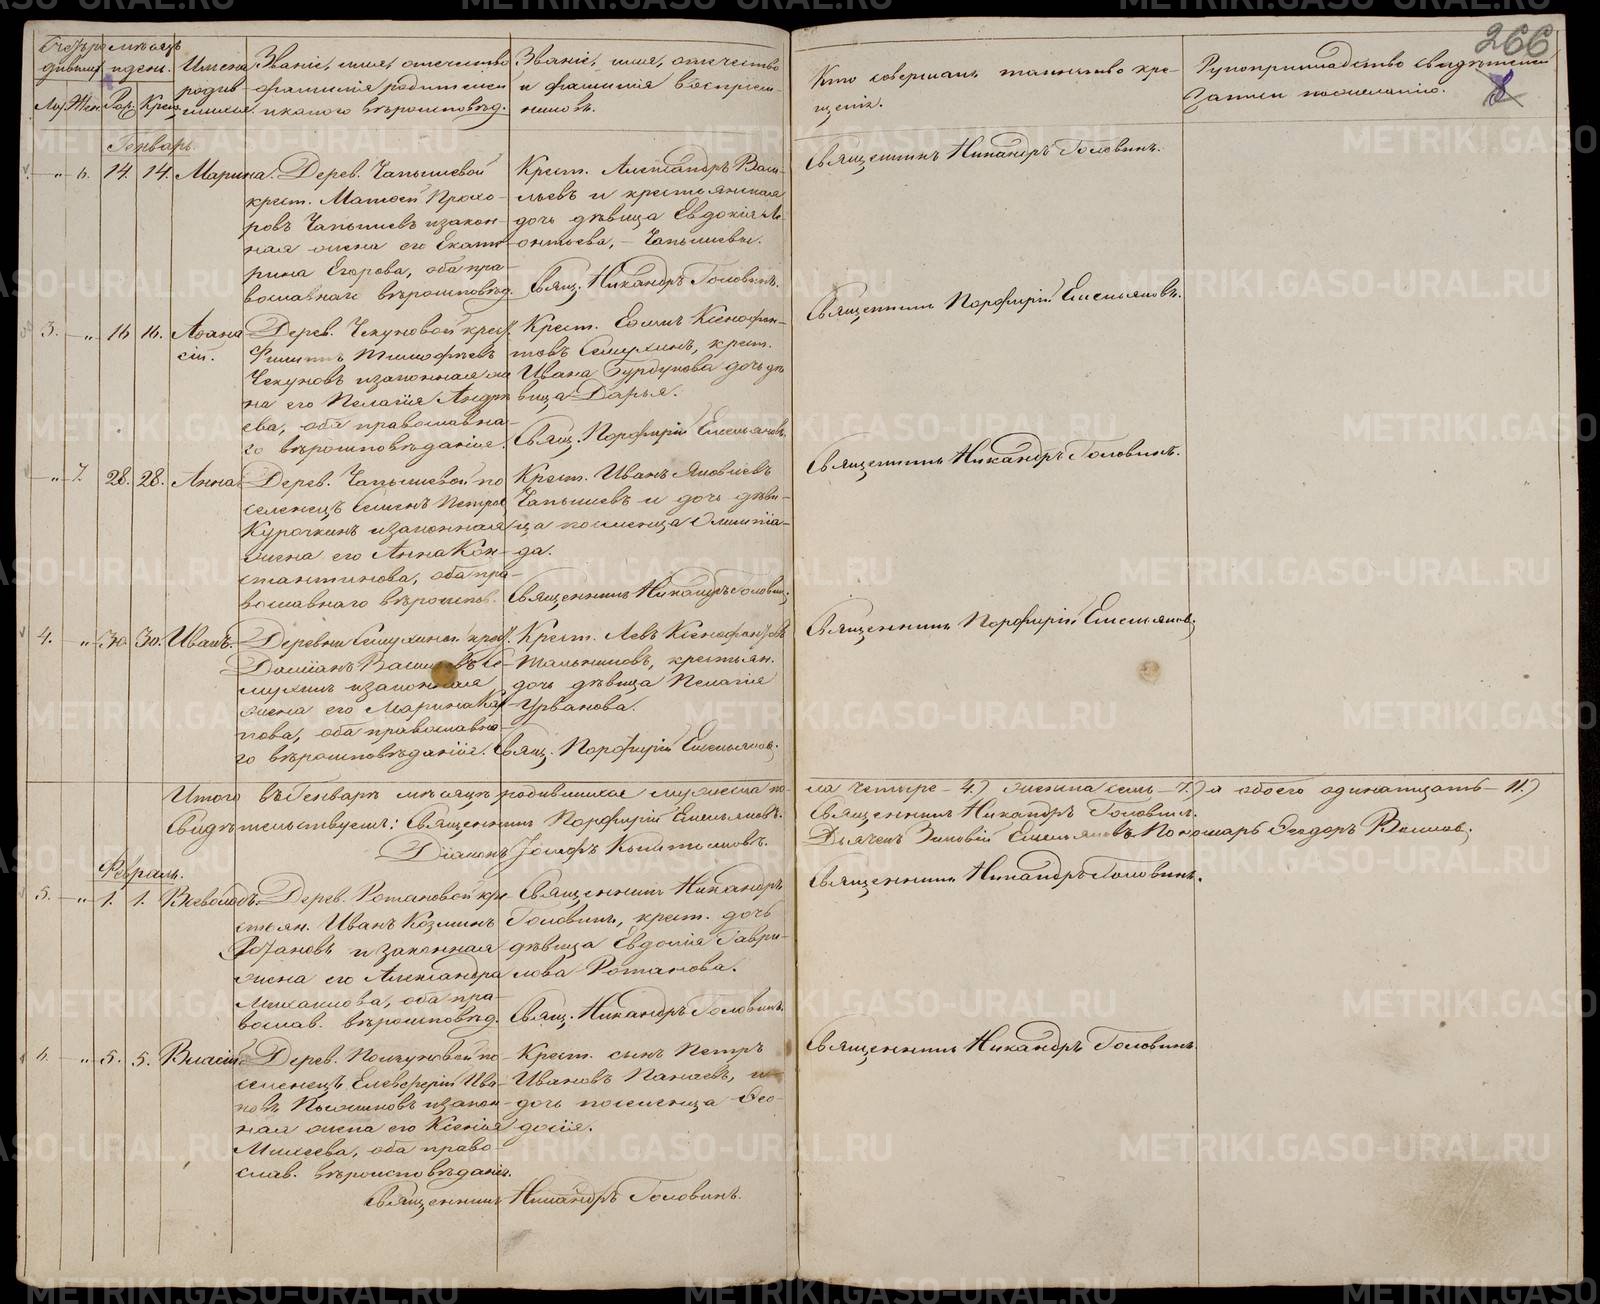 266
8
Счетъ ро- мѣсяцъ
дившихся и день.
Муж. Жен. Рож. Крещ.
Имена
родив-
шихся.
Званіе, имя, отчество
фамилія родителей
и какого вѣроисповѣд.
Званіе, имя, отчество
и фамилія воспріем-
никовъ.
Кто совершалъ таинство кре-
щенія.
Рукоприкладство свидѣтелей
записи по желанію.
Генварь.
„ 6. 14. 14. Марина.
Дерев. Чапышевой
крест. Матѳей Прохо-
ровъ Чапышевъ и закон-
ная жена его Екате-
рина Егорова, оба пра-
вославнаго вѣроисповѣд.
Крест. Александръ Васи-
льевъ и крестьянская
дочь дѣвица Евдокія Ле-
онтьева, – Чапышевы.
Свящ. Никандръ Головинъ.
Священникъ Никандръ Головинъ.
3. „ 16 16. Аѳана
сій.
Дерев. Чекуновой крест.
Филиппъ Тимофѣевъ
Чекуновъ и законная же
на его Пелагія Андре
ева, оба православна-
го вѣроисповѣданія.
Крест. Ксенофон-
товъ Семухинъ, крест.
Ивана Бурдукова дочь дѣ
вица Дарья.
Свящ. Порфирій Емельяновъ.
Священникъ Порфирій Емельяновъ.
„ 7. 28. 28. Анна
Дерев. Чапышевой по
селенецъ Семенъ Петровъ
Курочкинъ и законная
жена его Анна Кон-
стантинова, оба пра-
вославнаго вѣроиспов.
Крест. Иванъ Яковлевъ
Чапышевъ и дочь дѣви-
ца поселенца Олимпіа-
да.
Священникъ Никандръ Головинъ.
Священникъ Никандръ Головинъ.
4. „ 30. 30. Иванъ.
Деревни Семухиной крест.
Даміанъ Васильевъ Се-
мухинъ и законная
жена его Марина Кар
пова, оба православна-
го вѣроисповѣданія.
Крест. Левъ Ксенофонтовъ
крестьян.
дочь дѣвица Пелагія
Урванова.
Свящ. Порфирій Емельяновъ.
Священникъ Порфирій Емельяновъ.
Итого въ Генварѣ мѣсяцѣ родившихся мужеска по-
ла четыре – 4.) женска семь – 7.) а обоего одинатцать – 11.)
Свидѣтельствуемъ: Священникъ Порфирій Емельяновъ.
Священникъ Никандръ Головинъ.
Діаконъ Іосифъ
Дьячекъ Зиновій Емельяновъ. Пономарь Ѳеодоръ
Февраль.
5. „ 1. 1. Всеволодъ.
Дерев. Ротановой кре
стьян. Иванъ Козминъ
Ротановъ и законная
жена его Александра
Михаилова, оба пра-
вослав. вѣроисповѣд.
Священникъ Никандръ
Головинъ, крест. дочь
дѣвица Евдокія Гаври-
лова Ротанова.
Свящ. Никандръ Головинъ.
Священникъ Никандръ Головинъ.
6. „ 5. 5. Власій.
Дерев. по-
селенецъ Елевферій Ива-
новъ и закон-
ная жена его Ксенія
Михеева, оба право-
слав. вѣроисповѣданія.
Крест. сынъ Петръ
Ивановъ Панаевъ, и
дочь поселенца Ѳео-
досія.
Священникъ Никандръ Головинъ.
Священникъ Никандръ Головинъ.